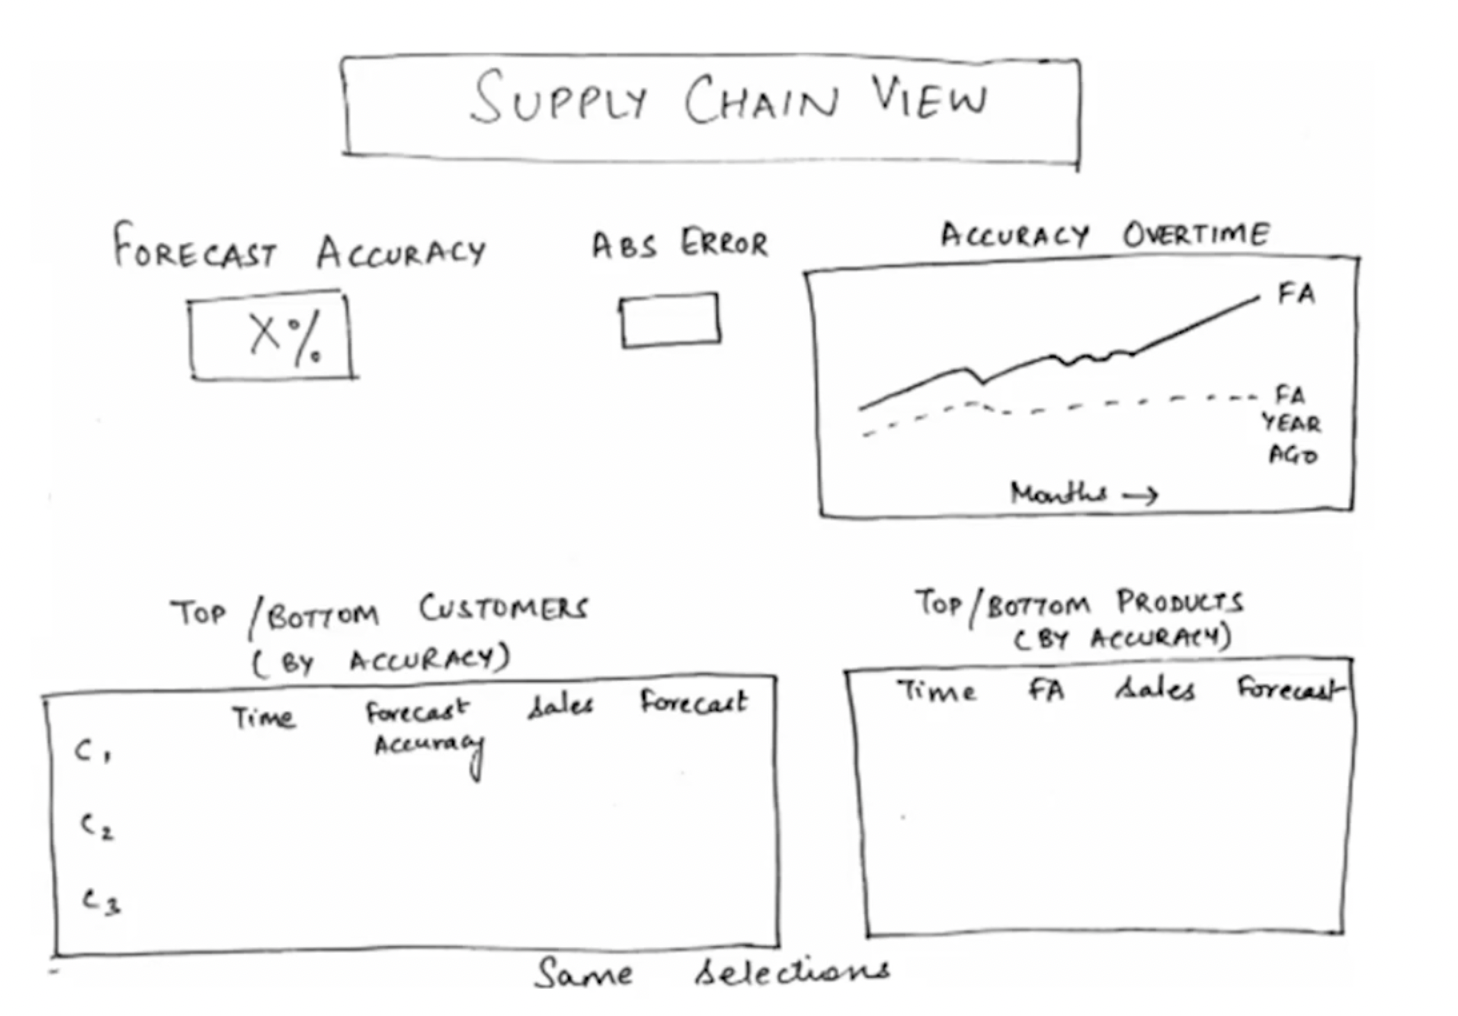 SUPPLY CHAIN VIEW
FORECAST ACCURACY
X%
ABS ERROR
ACCURACY OVERTIME
FA
FA
YEAR
AGO
Months →
TOP/BOTTOM CUSTOMERS
(BY ACCURACY)
Time Forecast Sales Forecast
Accuracy
C1
C2
C3
TOP/BOTTOM PRODUCTS
(BY ACCURACY)
Time FA Sales Forecast
Same selections